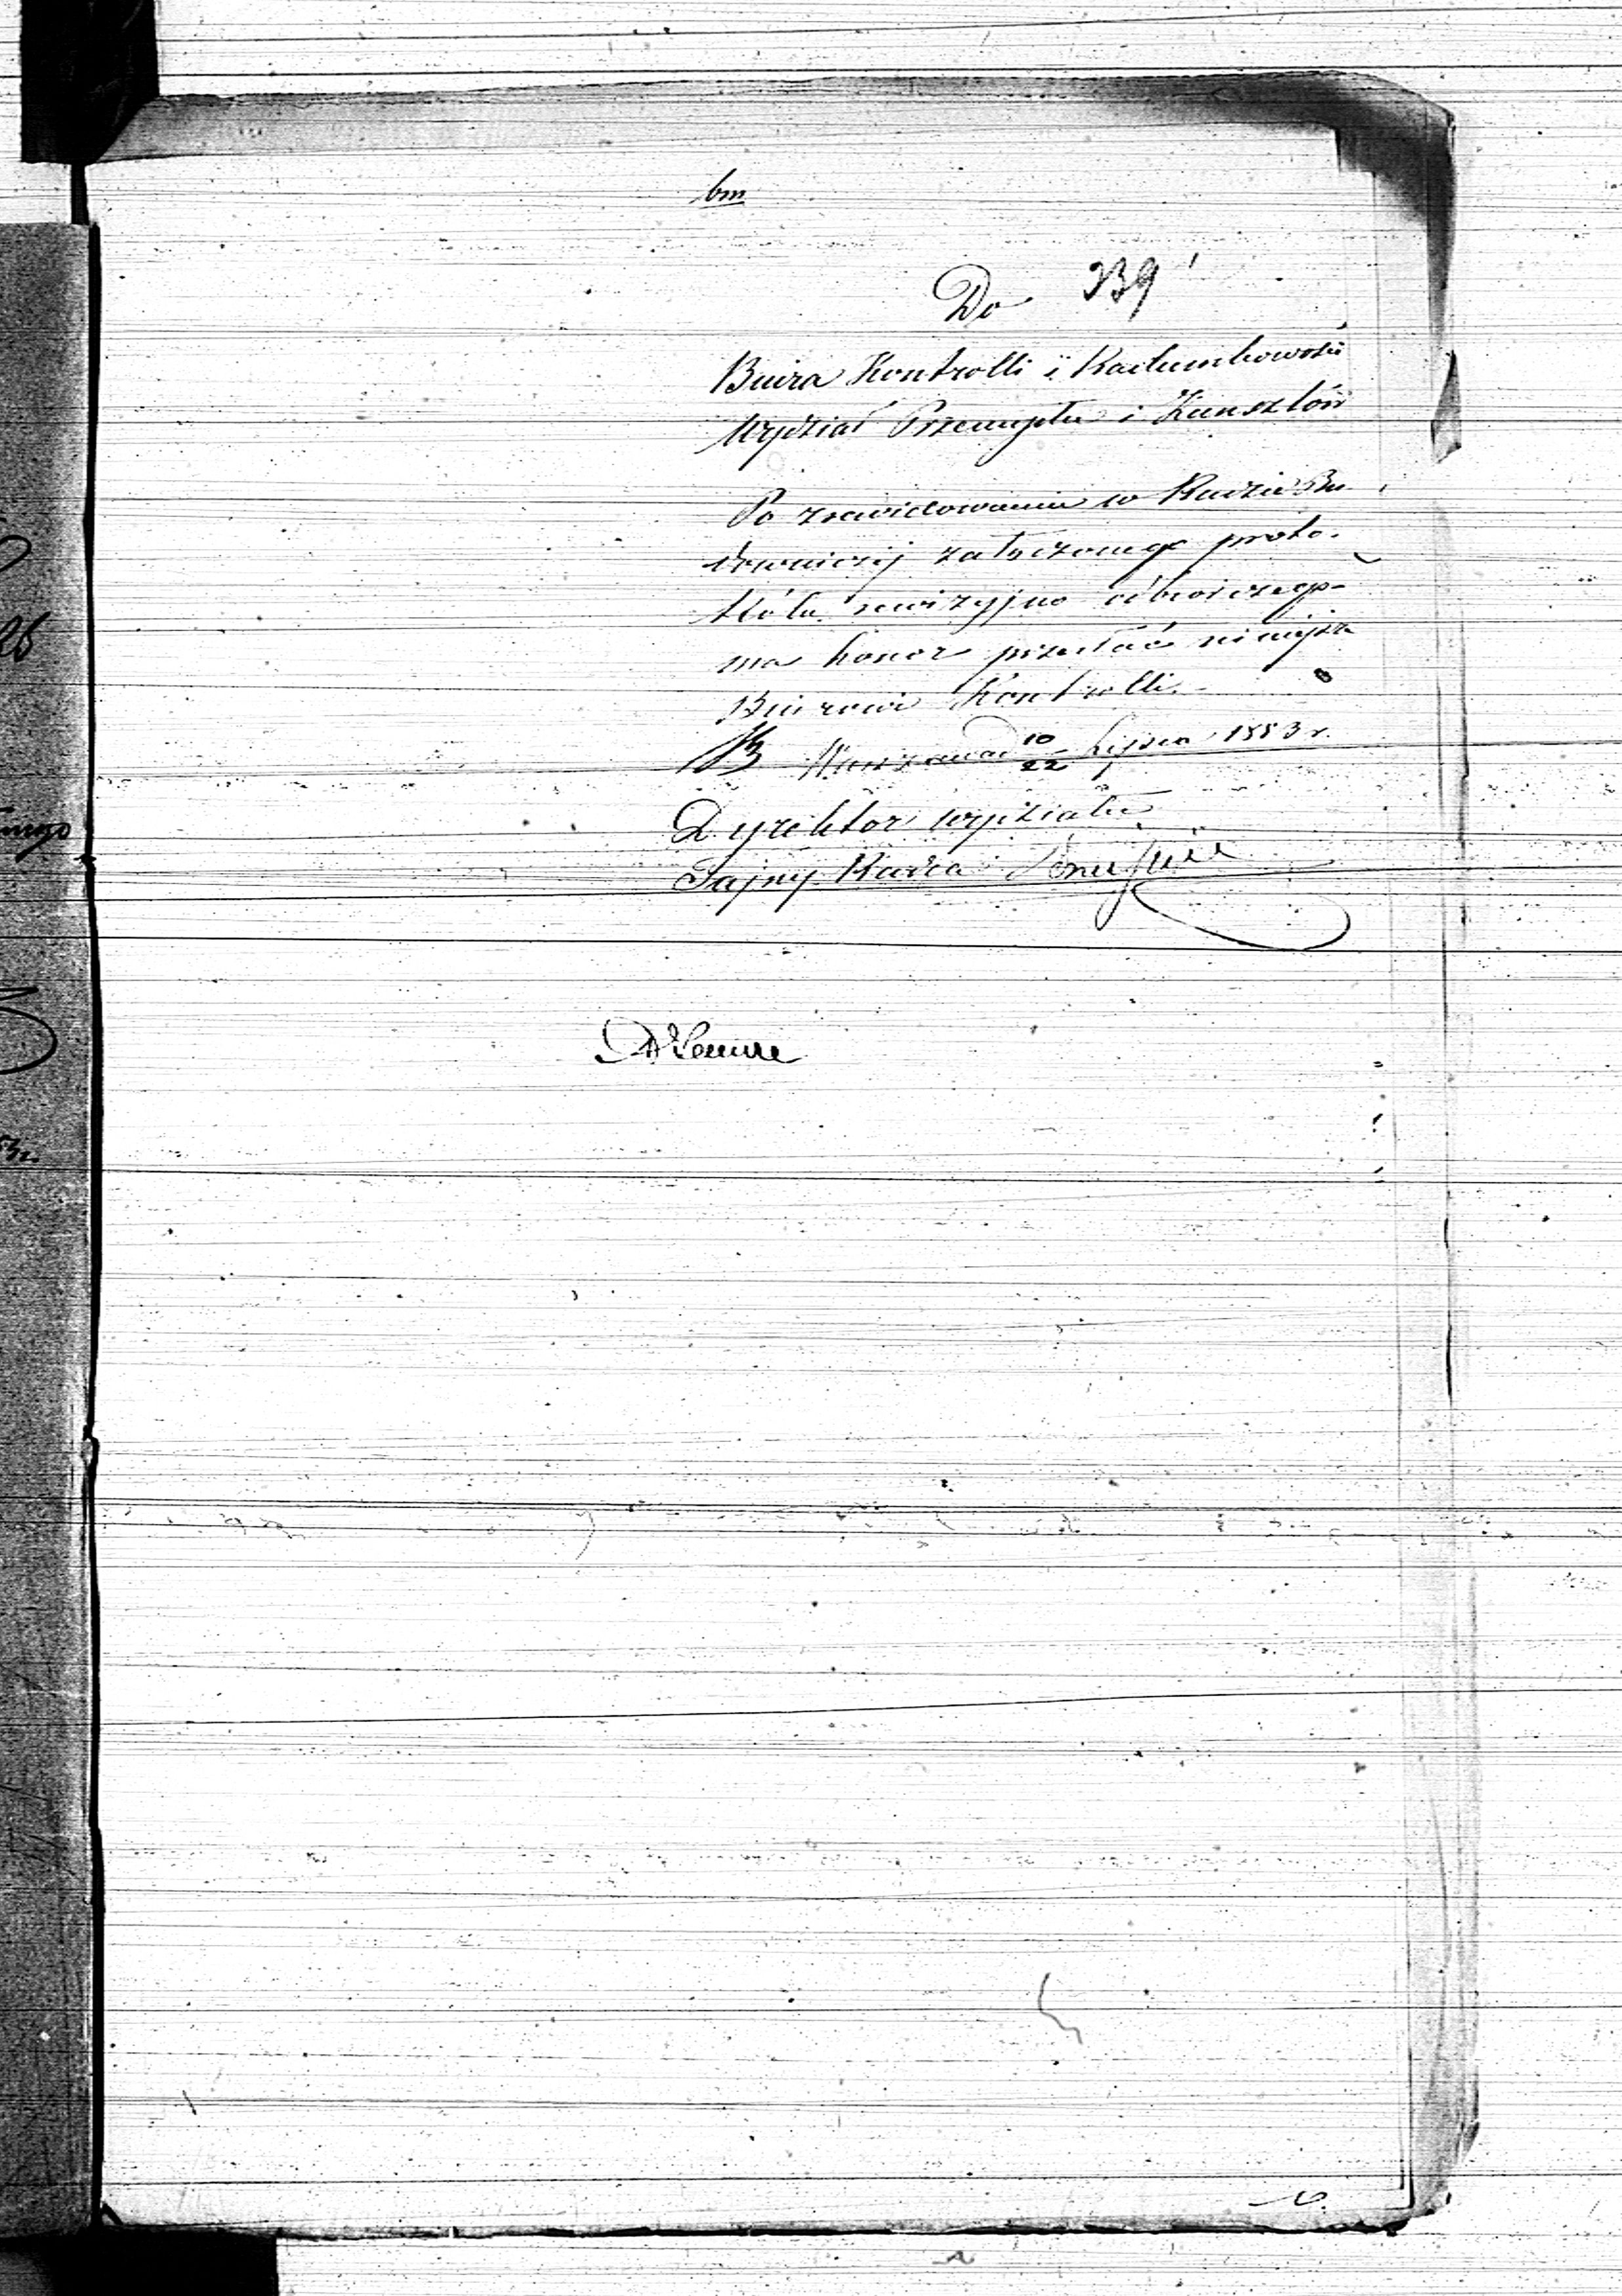 bm
Do 339
Biura Kontrolli i Rachunkowości
Wydział Przemysłu i Kunsztów
Po zrewidowaniu w Radzie Bu
downiczej załączonego proto-
kółu rewizyjno odbiorczego
ma honor przesłać niniejsze
Biurowi Kontrolli.
Warszawa d 10/22 Lipca 1853 r.
Dyrektor Wydziału
Tajny Radca